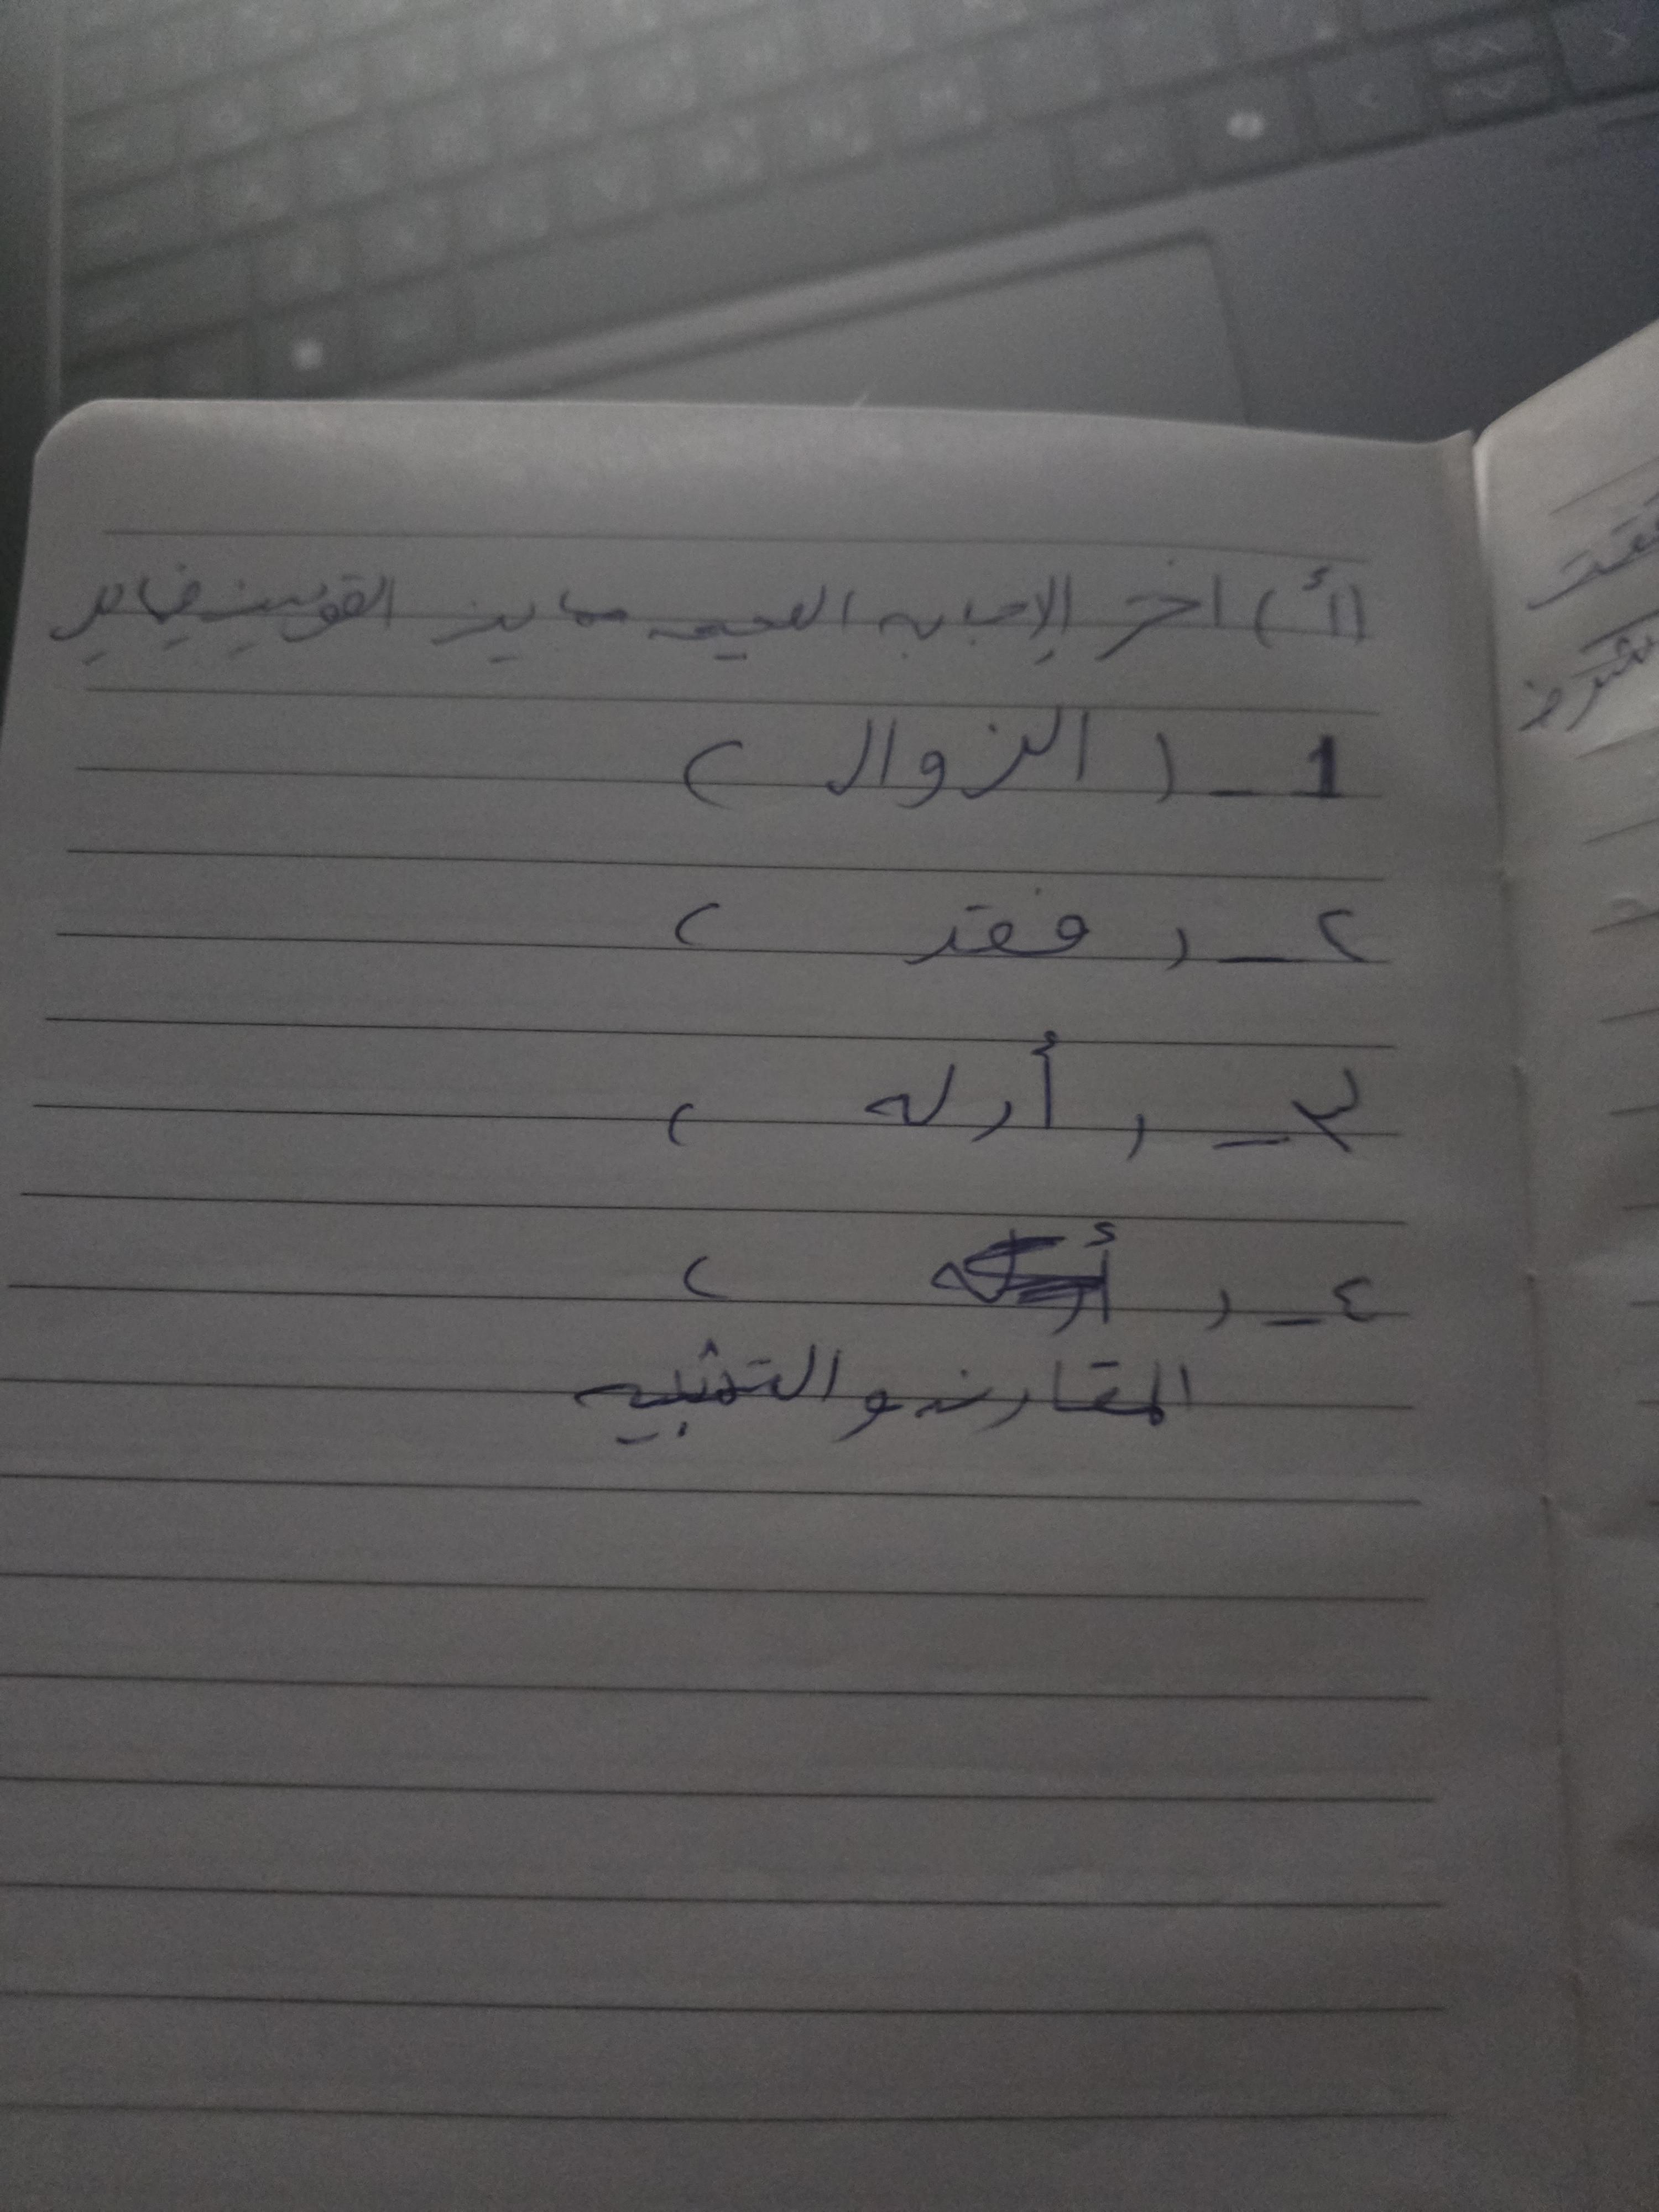 أ) اختر الإجابه الصحيحه مما بين القوسين فيما يلي
1 _ ( الزوال )
٢ _ ( فقد )
٣ _ ( أدله )
٤ _ ( )
المقارنه والتشبيه